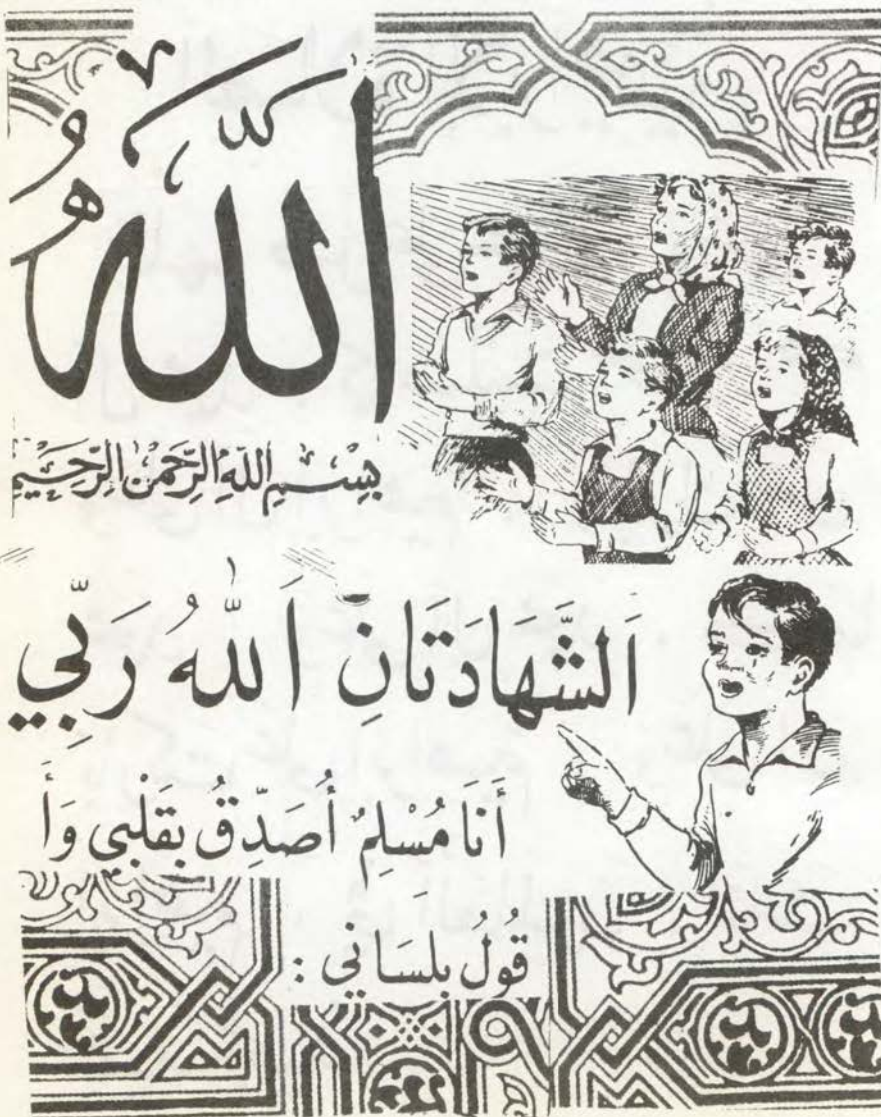 اَللّٰهُ
بِسْمِ اللّٰهِ الرَّحْمٰنِ الرَّحِيْمِ
اَلشَّهَادَتَانِ اَللّٰهُ رَبِّي
أَنَا مُسْلِمٌ أُصَدِّقُ بِقَلْبِي وَأَ
قُولُ بِلِسَانِي :